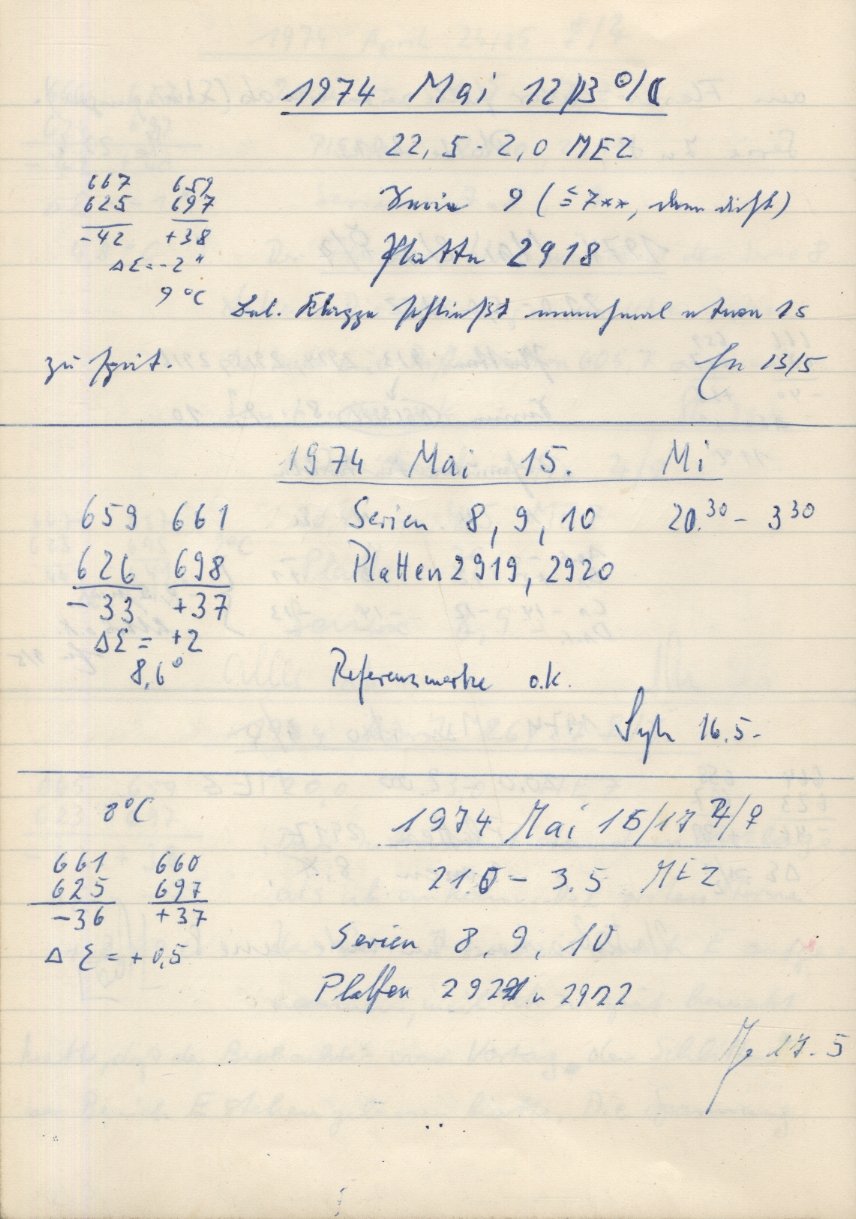 1974 Mai 12/13 ☉/☾
22,5 - 2,0 MEZ
667 659
625 697
-42 +38
ΔΣ = -2"
9°C
Serie 9 (≤ 7**, dann dicht)
Platte 2918
Bel. Klappe schließt manchmal etwas 1s
zu spät. 13/5
1974 Mai 15. Mi
659 661
626 698
-33 +37
ΔΣ = +2
8,6°
Serien 8, 9, 10 20.30 - 3 30
Platten 2919, 2920
Referenzmarke o.k.
16.5.
8°C
1974 Mai 16/17 ♃/♀
661 660
625 697
-36 +37
ΔΣ = +0,5
21.0 - 3.5 MEZ
Serien 8, 9, 10
Platten 2921 u 2922
17.5